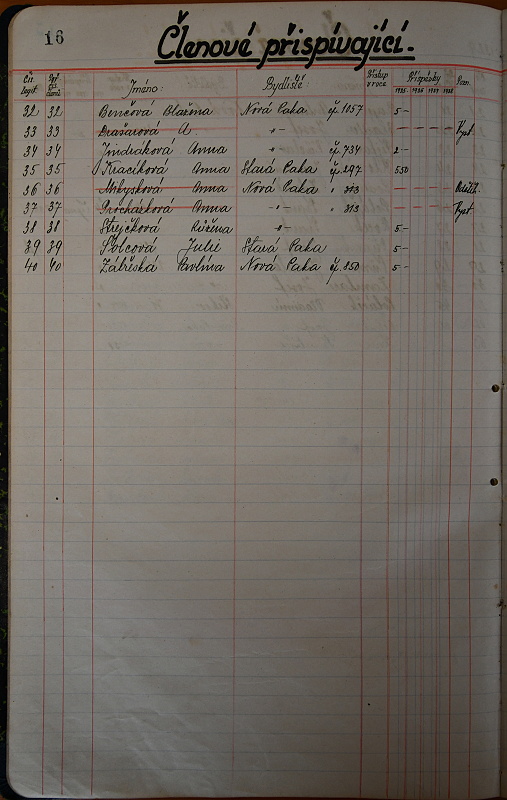 16
Členové přispívající.
Čís. legit Poř. čís. členů Jméno: Bydliště: Přístup v roce Příspěvky Pozn.
1935. 1936 1937 1938
32 32 Benešová Blažena Nová Paka čp. 1057 5 -
33 33 Drašarová A. " - Vyst.
34 34 Jindráková Anna " - čp. 734 2 -
35 35 Kracíková Anna Stará Paka čp. 297 5 50
36 36 Mikysková Anna Nová Paka " 313
37 37 Procházková Anna " - " 313 Vyst
38 38 Strejčková Růžena " - 5 -
39 39 Šolcová Julie Stará Paka 5 -
40 40 Zábřeská Pavlína Nová Paka čp. 850 5 -